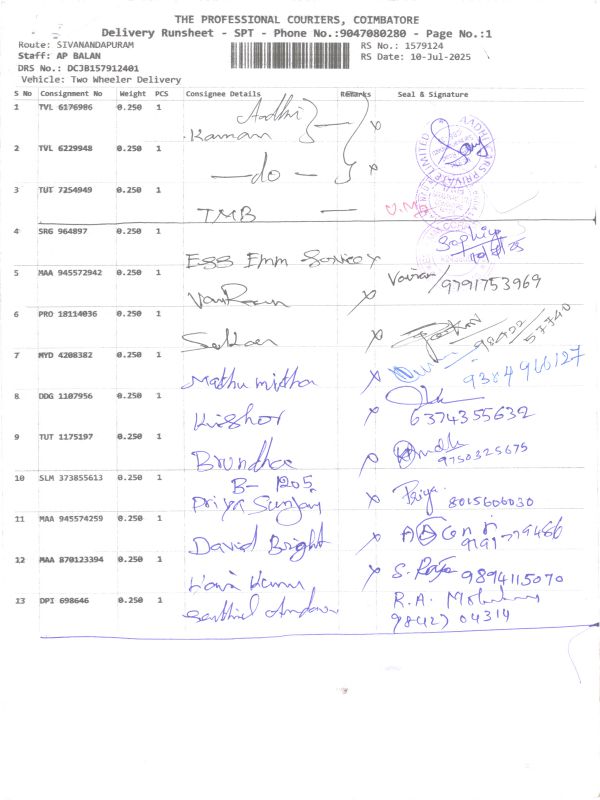 THE PROFESSIONAL COURIERS, COIMBATORE
Delivery Runsheet - SPT - Phone No.:9047080280 - Page No.:1
Route: SIVANANDAPURAM RS No.: 1579124
Staff: AP BALAN RS Date: 10-Jul-2025
DRS No.: DCJB157912401
Vehicle: Two Wheeler Delivery
S No Consignment No Weight PCS Consignee Details Remarks Seal & Signature
1 TVL 6176986 0.250 1 Aadhi
Kaman
2 TVL 6229948 0.250 1
-do-
3 TUT 7254949 0.250 1
TMB
4 SRG 964897 0.250 1 Sophiya
ESB Emm Service
5 MAA 945572942 0.250 1 9791753969
6 PRO 18114036 0.250 1 98422 57740
7 MYD 4208382 0.250 1
Mathumitha 9384966127
8 DDG 1107956 0.250 1
Kishor 6374355632
9 TUT 1175197 0.250 1
Brundha 9750325675
10 SLM 373855613 0.250 1 B- 1205
Priya Sunjay Priya 8015606030
11 MAA 945574259 0.250 1
David Bright
12 MAA 870123394 0.250 1 9894115070
13 DPI 698646 0.250 1 R.A.
Senthil 98427 04314